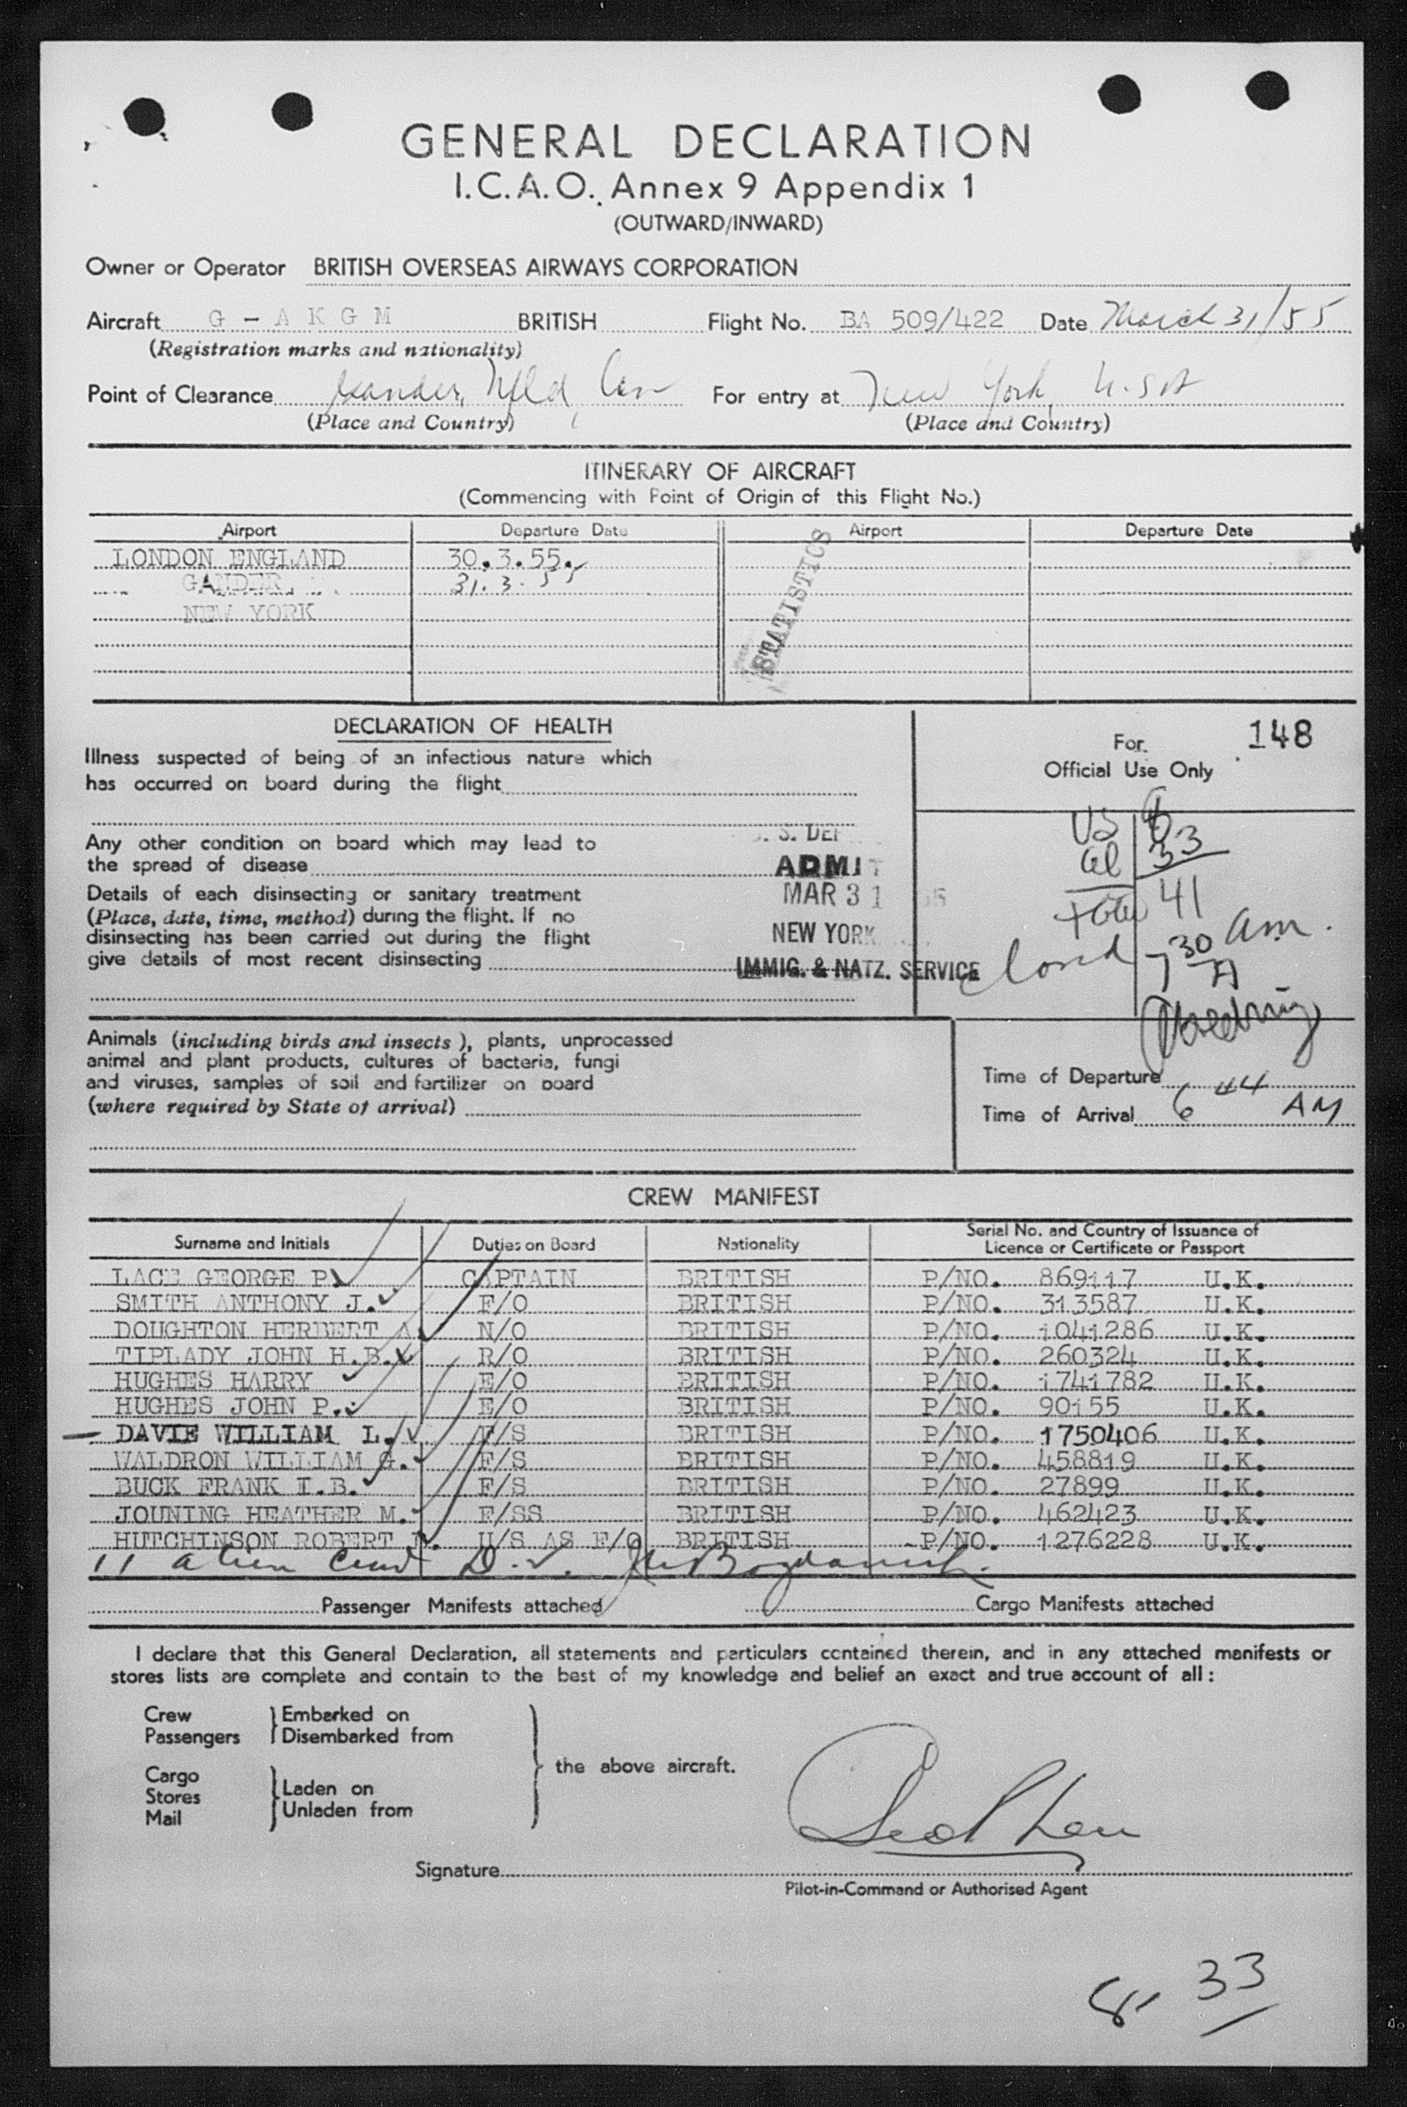 GENERAL DECLARATION
I.C.A.O. Annex 9 Appendix 1
(OUTWARD/INWARD)
Owner or Operator BRITISH OVERSEAS AIRWAYS CORPORATION
Aircraft G - A K G M BRITISH Flight No. BA 509/422 Date March 31/55
(Registration marks and nationality)
Point of Clearance Gander, Nfld, Can For entry at New York, U.S.A
(Place and Country) (Place and Country)
ITINERARY OF AIRCRAFT
(Commencing with Point of Origin of this Flight No.)
Airport Departure Date Airport Departure Date
LONDON ENGLAND 30.3.55.
GANDER 31.3.55
NEW YORK
STATISTICS
DECLARATION OF HEALTH
Illness suspected of being of an infectious nature which
has occurred on board during the flight
For 148
Official Use Only
Any other condition on board which may lead to
the spread of disease
Details of each disinsecting or sanitary treatment
(Place, date, time, method) during the flight. If no
disinsecting has been carried out during the flight
give details of most recent disinsecting
ADMIT
MAR 31 55
NEW YORK
IMMIG. & NATZ. SERVICE
US 8
al 33
total 41
7 30 A am.
Animals (including birds and insects), plants, unprocessed
animal and plant products, cultures of bacteria, fungi
and viruses, samples of soil and fertilizer on board
(where required by State of arrival)
Time of Departure
Time of Arrival 6 44 AM
CREW MANIFEST
Surname and Initials Duties on Board Nationality Serial No. and Country of Issuance of
Licence or Certificate or Passport
LACE GEORGE P. CAPTAIN BRITISH P/NO. 869117 U.K.
SMITH ANTHONY J. F/O BRITISH P/NO. 313587 U.K.
DOUGHTON HERBERT A. N/O BRITISH P/NO. 1041286 U.K.
TIPLADY JOHN H.B. R/O BRITISH P/NO. 260324 U.K.
HUGHES HARRY E/O BRITISH P/NO. 1741782 U.K.
HUGHES JOHN P. E/O BRITISH P/NO. 90155 U.K.
DAVIE WILLIAM L. F/S BRITISH P/NO. 1750406 U.K.
WALDRON WILLIAM G. F/S BRITISH P/NO. 458819 U.K.
BUCK FRANK I.B. F/S BRITISH P/NO. 27899 U.K.
JOUNING HEATHER M. F/SS BRITISH P/NO. 462423 U.K.
HUTCHINSON ROBERT U/S AS F/O BRITISH P/NO. 1276228 U.K.
11 alien crew
Passenger Manifests attached Cargo Manifests attached
I declare that this General Declaration, all statements and particulars contained therein, and in any attached manifests or
stores lists are complete and contain to the best of my knowledge and belief an exact and true account of all :
Crew Embarked on
Passengers Disembarked from
the above aircraft.
Cargo
Stores Laden on
Mail Unladen from
Signature
Pilot-in-Command or Authorised Agent
8 33